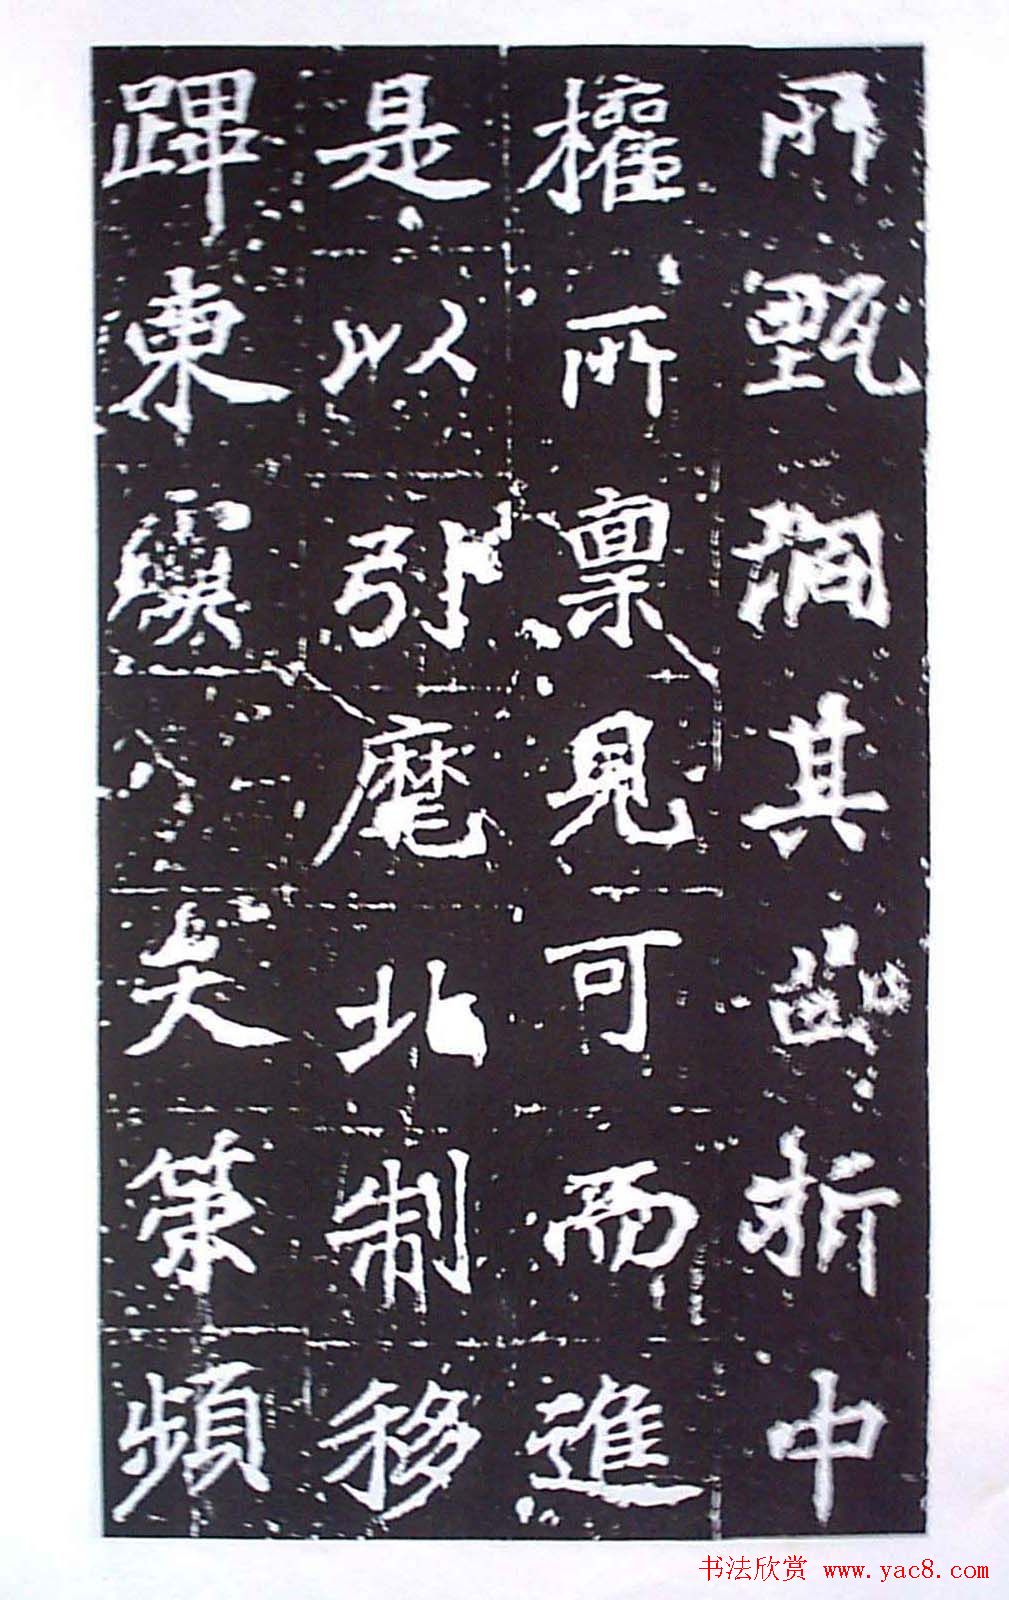 所甄洞其折中
權所稟見可而進
是以引麾北制移
東矣策頻
书法欣赏 www.yac8.com